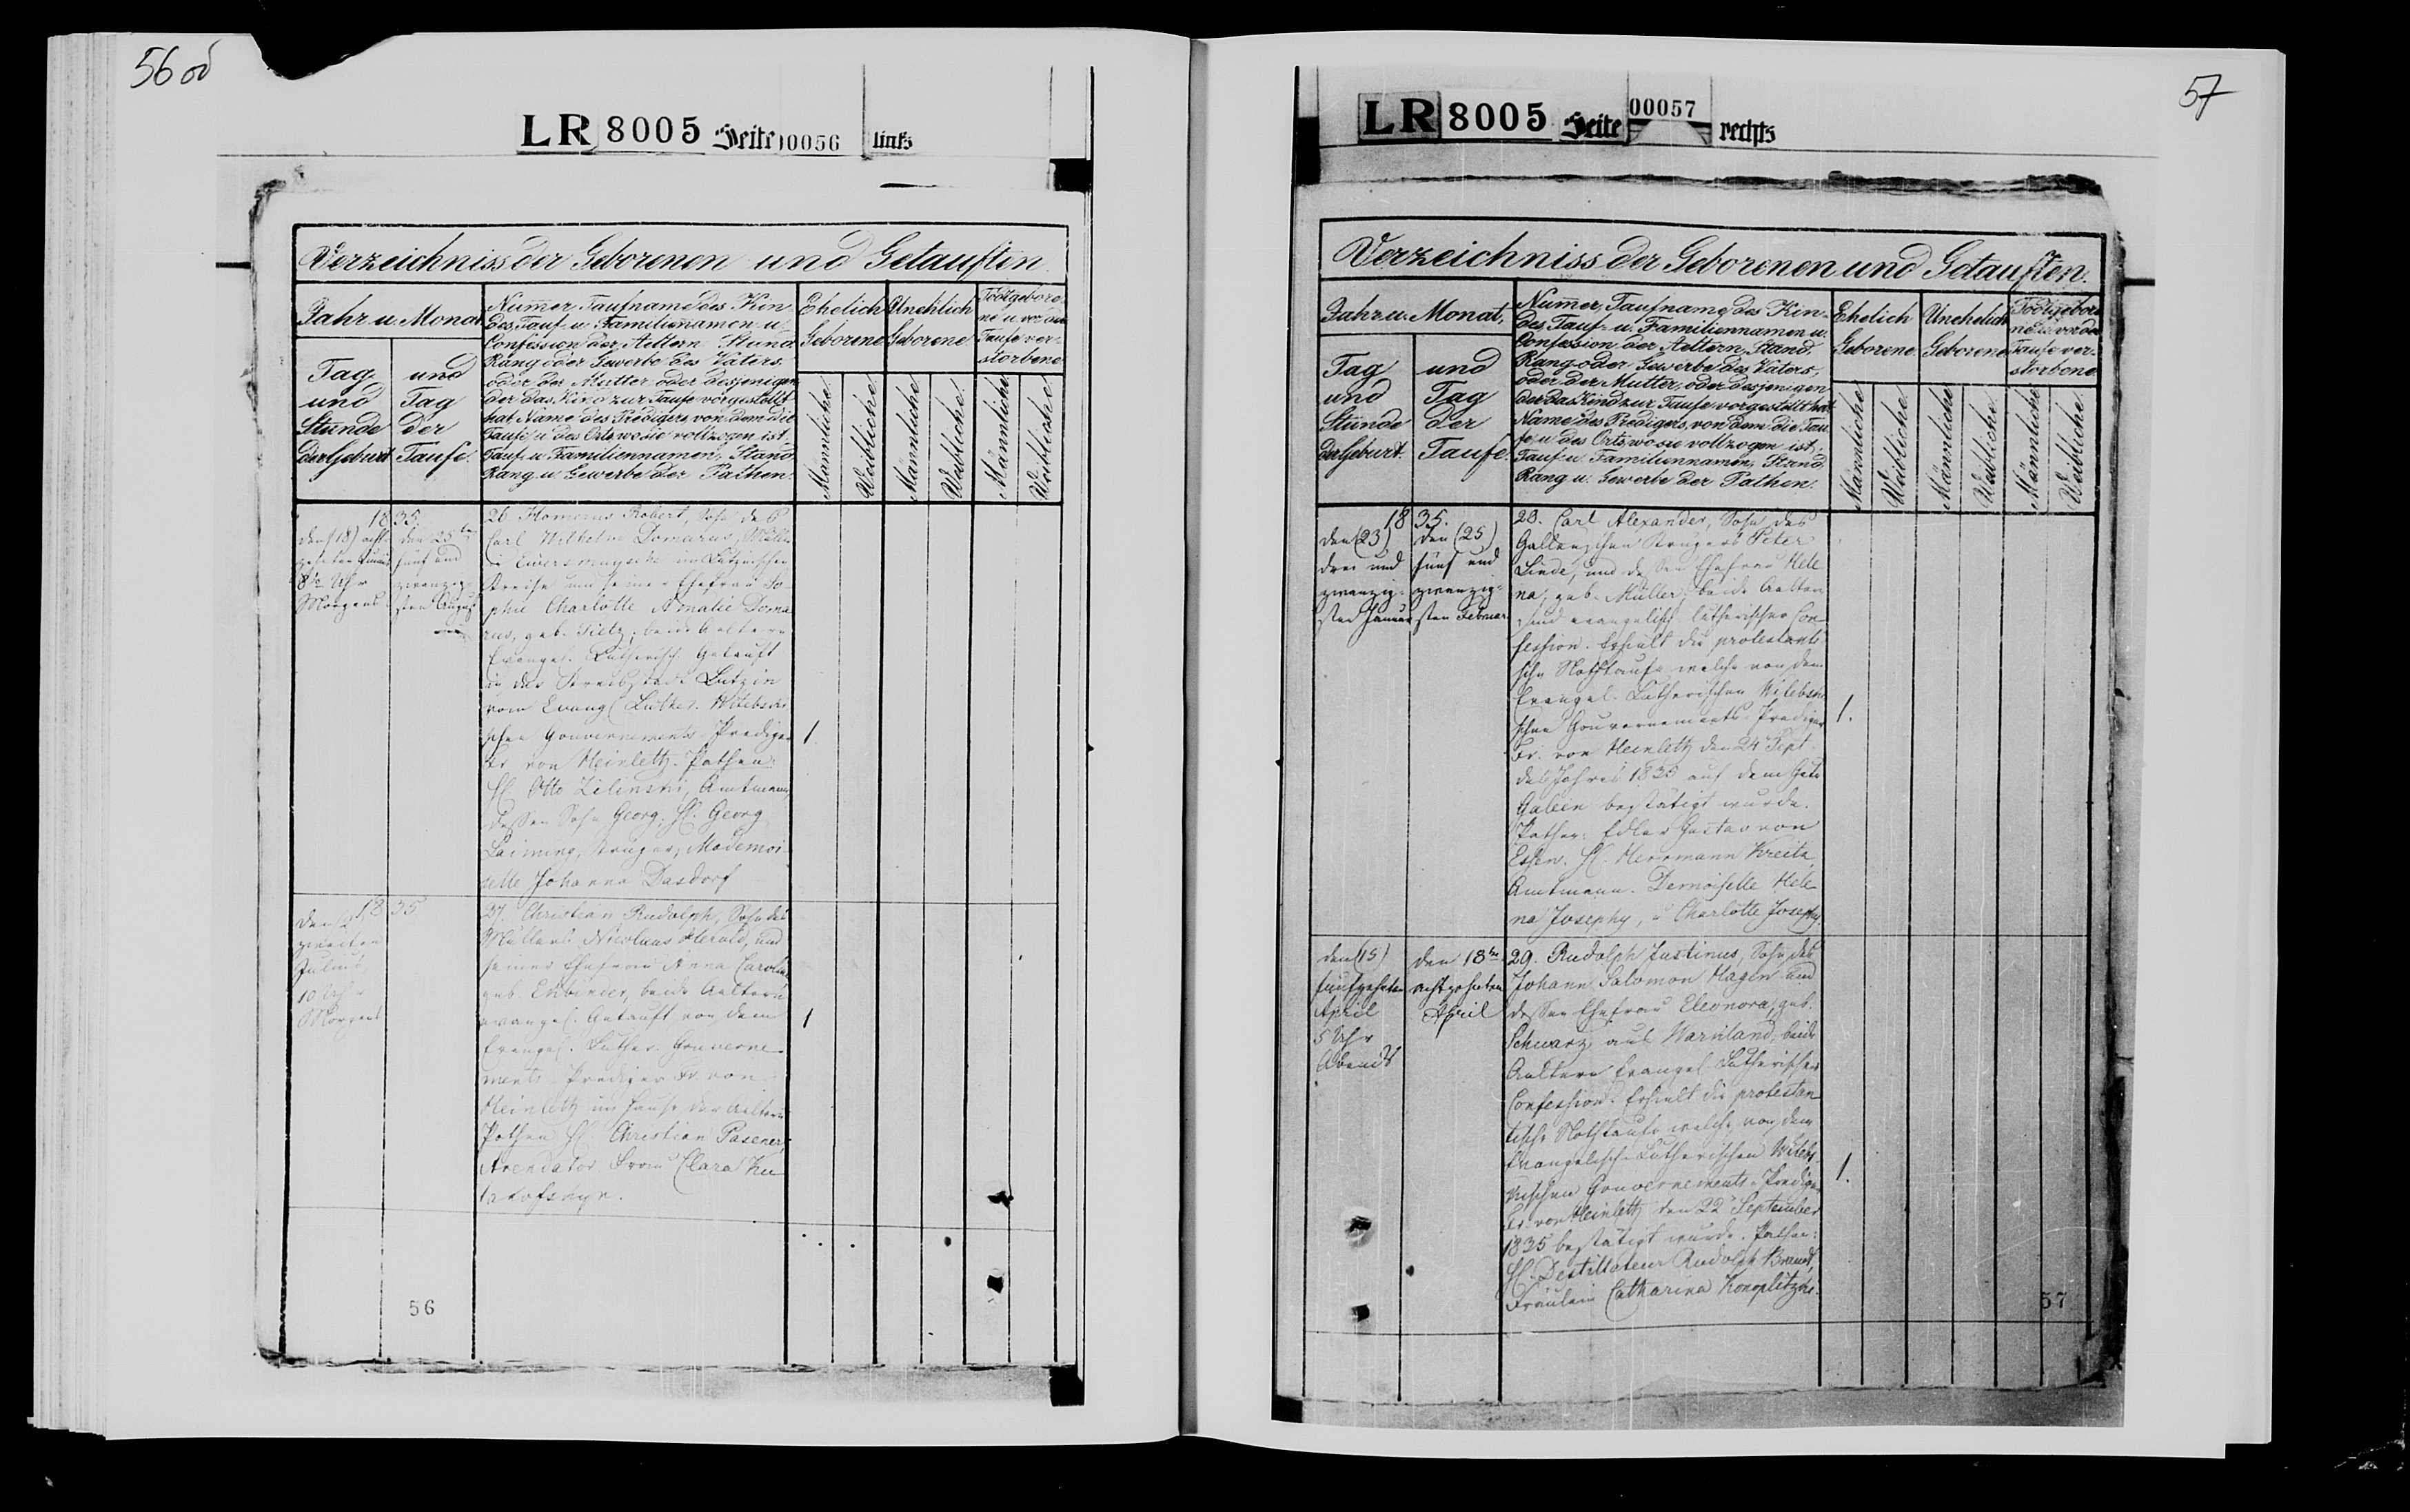 56 od
LR 8005 Seite 00056 links
Verzeichniss der Geborenen und Getauften
Jahr u. Monat
Tag und Stunde der Geburt
und Tag der Taufe.
Numer, Taufname des Kin-
des, Tauf- u. Familiennamen u.
Confession der Aeltern, Stand
Rang oder Gewerbe des Vaters
oder der Mutter oder desjenigen
der das Kind zur Taufe vorgestellt
hat, Name des Predigers, von dem die
Taufe u. des Orts, wo sie vollzogen ist,
Tauf- u. Familiennamen, Stand
Rang u. Gewerbe der Pathen.
Ehelich Geborene
Unehlich Geborene
Todtgebore-
ne u. vor der
Taufe ver-
storbene
Männliche
Weibliche
Männliche
Weibliche
Männliche
Weibliche
1835.
den (18) acht-
zehnten Junius
8 Uhr
Morgens
den 25ten
fünf und
zwanzig-
sten August
26. Homerus Robert, Sohn des
Carl Wilhelm Domarus,
in Ewersmuyschа im Lutzinschen
Kreise und seiner Ehefrau So-
phie Charlotte Amalie Doma-
rus, geb. Tietz; beide Aeltern
Evangel. Lutherisch. Getauft
in der Kreisstadt Lutzin
vom Evangl. Luther. Witebski-
schen Gouvernements-Prediger
Fr. von Heinleth. Pathen:
H. Otto Zilinski, Amtmann,
dessen Sohn Georg; H. Georg
Laiming, Krüger; Mademoi-
selle Johanna Dasdorf
1.
1835.
den 2
zweiten
Julius,
10 Uhr
Morgens
27. Christian Rudolph, Sohn des
Müllers Nicolaus Herold, und
seiner Ehefrau Anna Caroline
geb. Enbinder, beide Aeltern
evangel. Getauft von dem
Evangel. Luther. Gouverne-
ments-Prediger Fr. von
Heinleth im Hause der Aeltern
Pathen H. Christian Pasener,
Arendator. Frau Clara Ku-
1
56
57
LR 8005 Seite 00057 rechts
Verzeichniss der Geborenen und Getauften.
Jahr u. Monat,
Tag und Stunde der Geburt.
und Tag der Taufe.
Numer, Taufname des Kin-
des, Tauf- u. Familiennamen u.
Confession der Aeltern, Stand,
Rang oder Gewerbe des Vaters,
oder der Mutter, oder desjenigen
der das Kind zur Taufe vorgestellt hat,
Name des Predigers, von dem die Tau-
fe u. des Orts, wo sie vollzogen ist;
Tauf- u. Familiennamen, Stand,
Rang u. Gewerbe der Pathen.
Ehelich Geborene.
Unehelich Geborene
Todtgebore-
ne u. vor der
Taufe ver-
storbene
Männliche
Weibliche
Männliche
Weibliche
Männliche
Weibliche
1835.
den (23)
drei und
zwanzig-
sten Januar
den (25)
fünf und
zwanzig-
sten Februar
28. Carl Alexander, Sohn des
Galeenschen Krügers Peter
Linde, und dessen Ehefrau Hele-
na, geb. Müller; beide Aeltern
sind evangelisch lutherischer Con-
fession. Erhielt die protestanti-
sche Nothtaufe welche von dem
Evangel. Lutherischen Witebski-
schen Gouvernements-Prediger
Fr. von Heinleth den 24 Sept.
des Jahres 1835 auf dem Gute
Galeen bestätigt wurde.
Pathen: Edler Gustav von
Essen. H. Herrmann Kreitz,
Amtmann. Demoiselle Hele-
na Josephy, u Charlotte Josephy.
1.
den (15)
fünfzehnten
April
5 Uhr
Abends
den 18ten
achtzehnten
April
29. Rudolph Justinus, Sohn des
Johann Salomon Hagen und
dessen Ehefrau Eleonora, geb.
Schwarz aus Warnland, beide
Aeltern Evangel. Lutherischer
Confession. Erhielt die protestan-
tische Nothtaufe welche von dem
Evangelisch-Lutherischen Witebs-
kischen Gouvernements-Prediger
Fr. von Heinleth den 22 September
1835 bestätigt wurde. Pathen:
H. Destillateur Rudolph Brandt,
Fräulein Catharina Konoplitzki.
1.
57